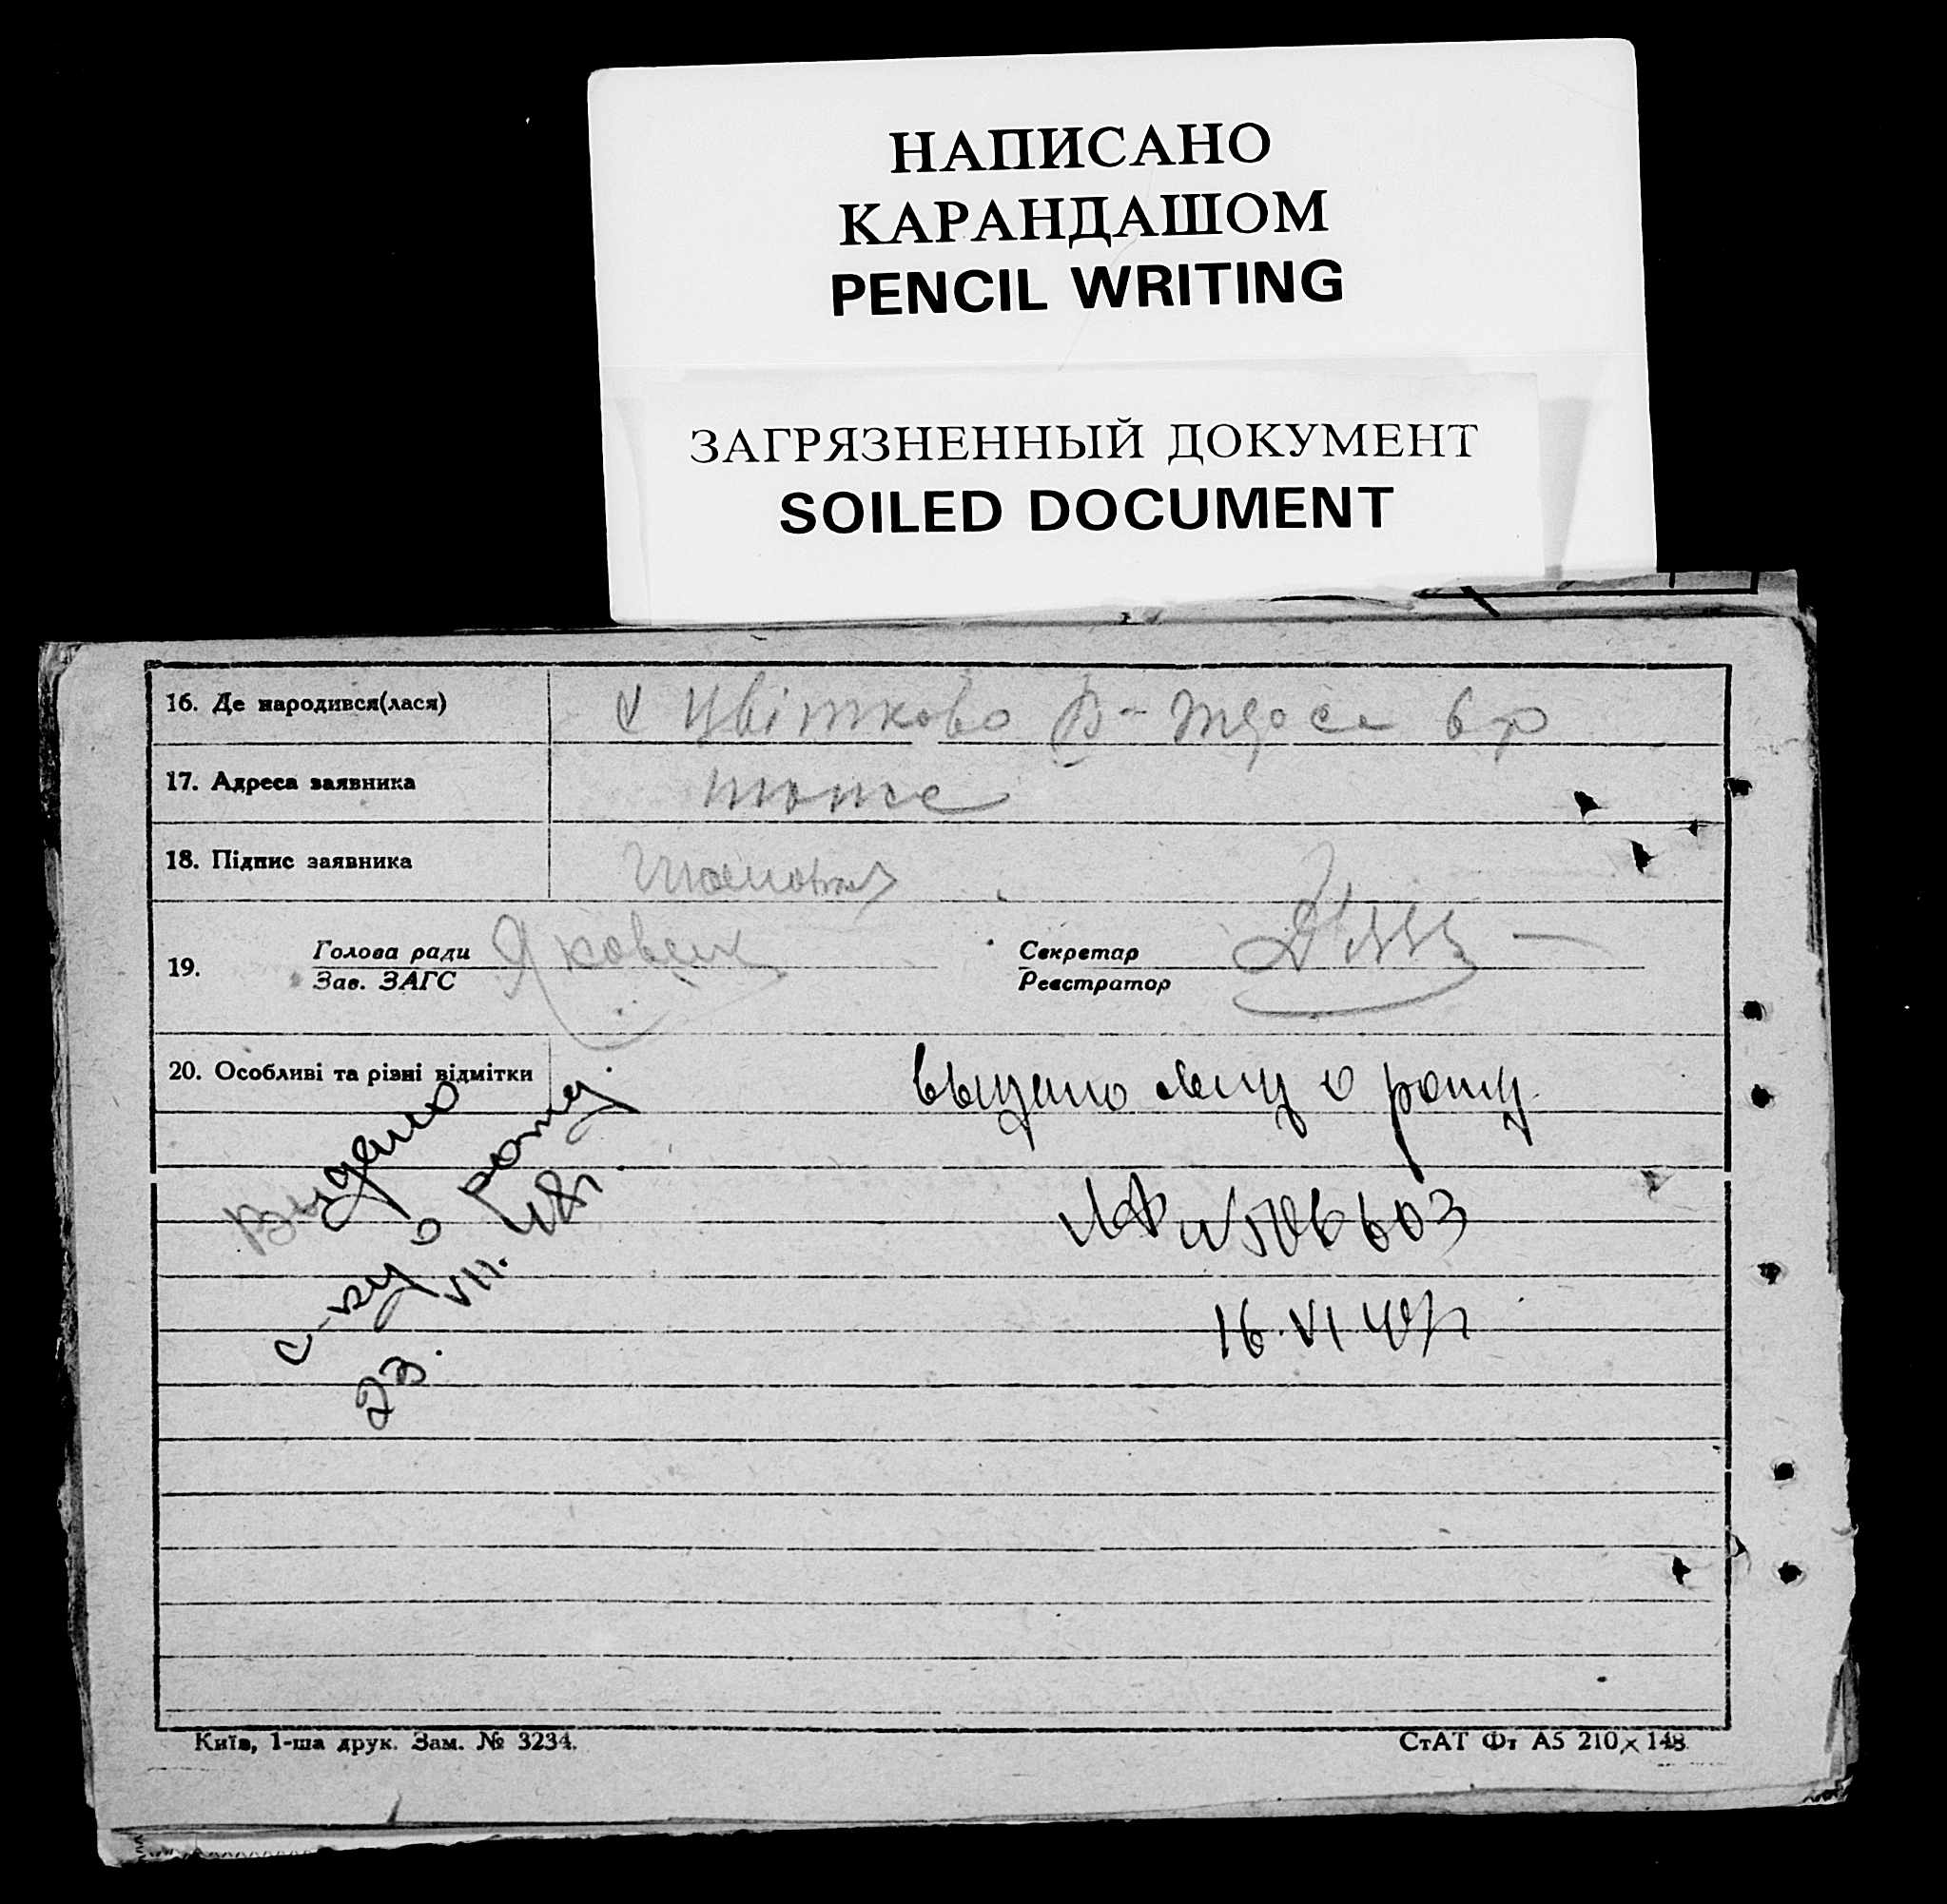 НАПИСАНО
КАРАНДАШОМ
PENCIL WRITING
ЗАГРЯЗНЕННЫЙ ДОКУМЕНТ
SOILED DOCUMENT
16. Де народився(лася)
с Цвітково В-
17. Адреса заявника
тоже
18. Підпис заявника
19. Голова ради
Зав. ЗАГС
Секретар
Реєстратор
20. Особливі та різні відмітки
Выдано
с-ву о рожд.
23. VII.
выдано о рожд.
506603
16.VI
Київ, 1-ша друк. Зам. № 3234.
СтАТ Фт А5 210×148